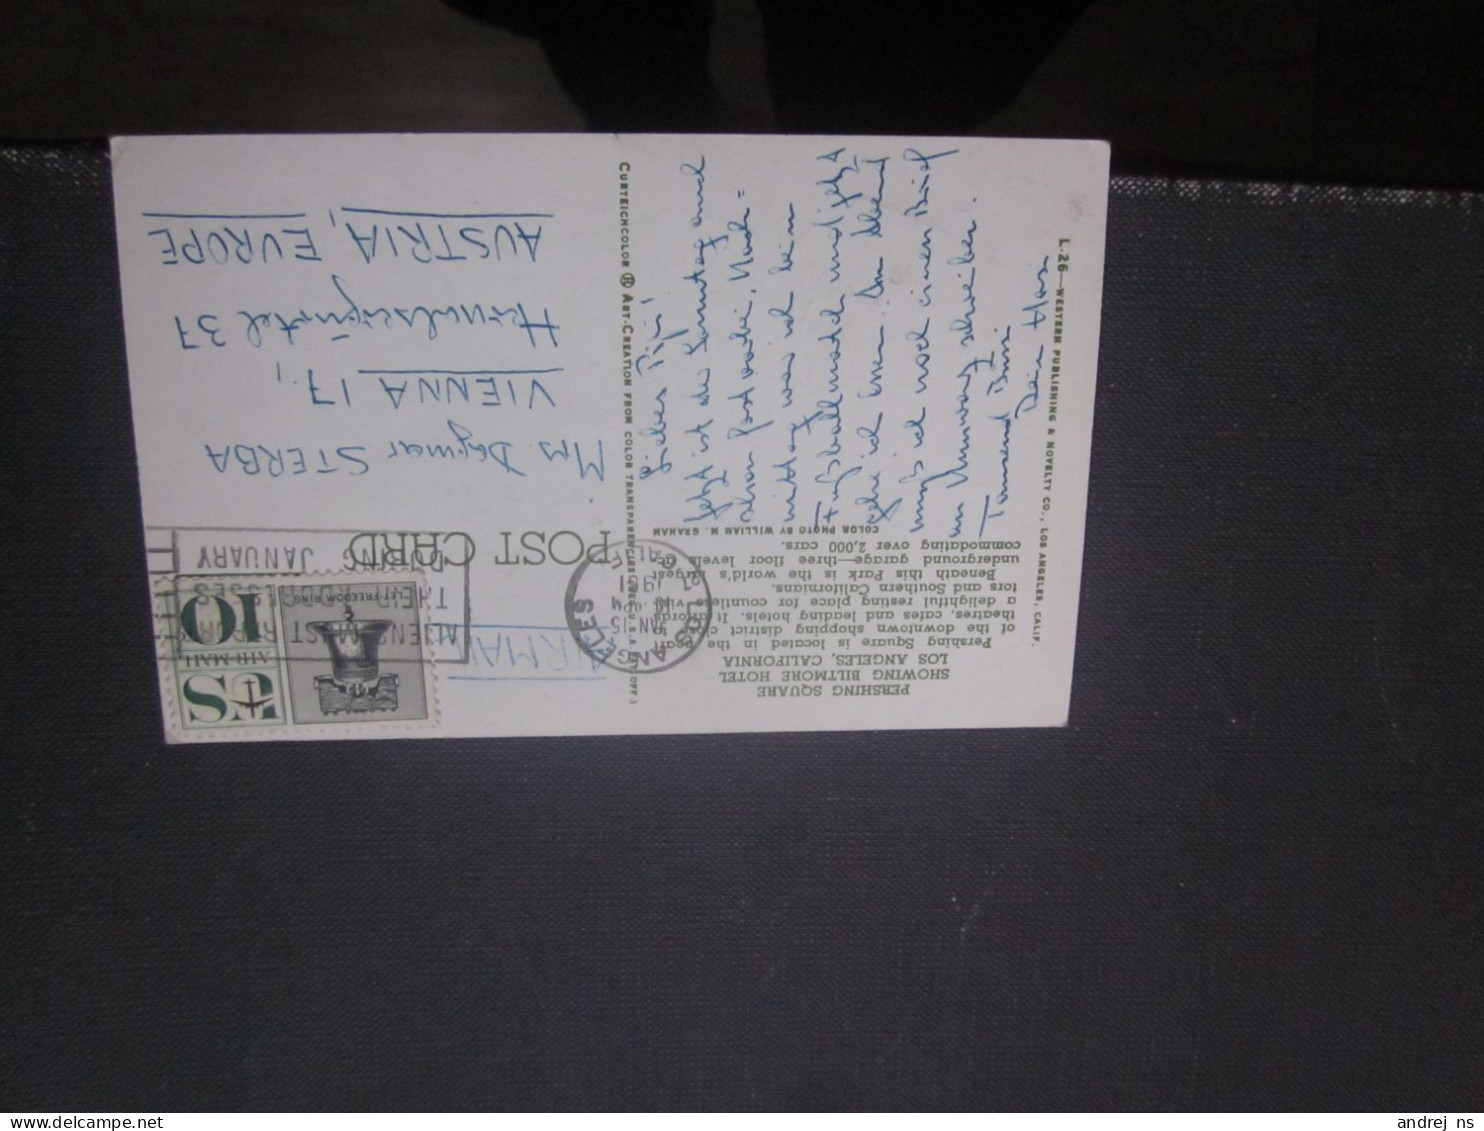 PERSHING SQUARE
SHOWING BILTMORE HOTEL
LOS ANGELES, CALIFORNIA
Pershing Square is located in the heart
of the downtown shopping district close to
theatres, cafes and leading hotels. It affords
a delightful resting place for countless visi-
tors and Southern Californians.
Beneath this Park is the world's largest
underground garage—three floor levels ac-
commodating over 2,000 cars.
COLOR PHOTO BY WILLIAM M. GRAHAM
Liebes
Jetzt ist der Samstag auch
schon fast vorbei. Nach=
mittag war ich beim
Fußballmatch und jetzt
gehe ich essen. Am Abend
muß ich noch einen Brief
an schreiben.
Tausend Bussi
Dein
L.26—WESTERN PUBLISHING & NOVELTY CO., LOS ANGELES, CALIF.
CURTEICHCOLOR ® ART-CREATION FROM COLOR TRANSPARENCIES (REG. U.S.A. PAT. OFF.)
POST CARD
AIRMAIL
LOS ANGELES
CALIF
JAN 15
PM
1961
ALIENS MUST REPORT
THEIR ADDRESSES
DURING JANUARY
LET FREEDOM RING
US
AIR MAIL
10¢
Mrs. Dagmar STERBA
VIENNA 17,
Hernalsergürtel 37
AUSTRIA, EUROPE
andrej_ns